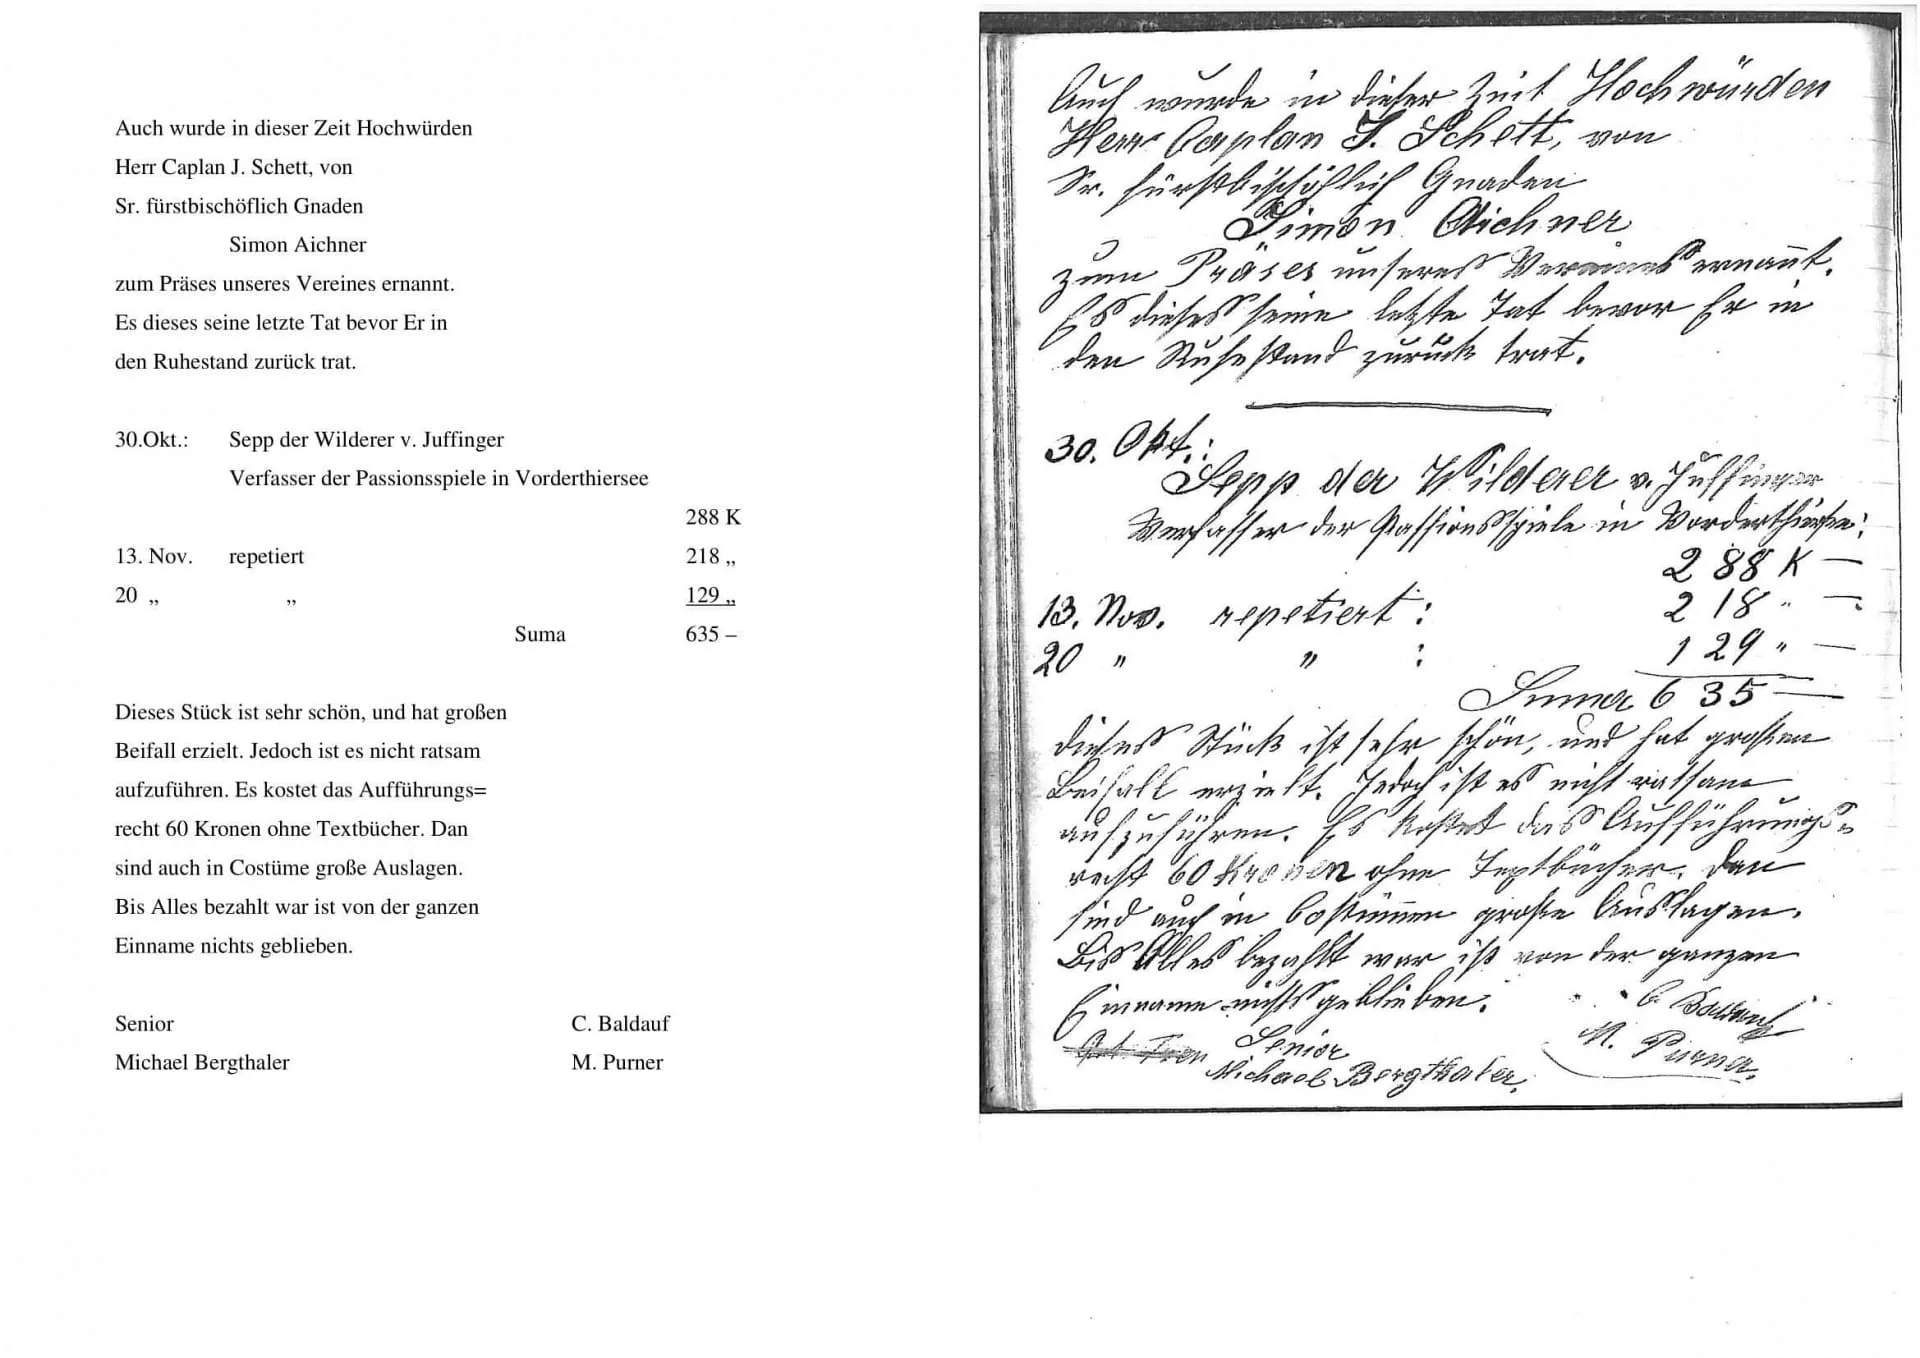 Auch wurde in dieser Zeit Hochwürden
Herr Caplan J. Schett, von
Sr. fürstbischöflich Gnaden
Simon Aichner
zum Präses unseres Vereines ernannt.
Es dieses seine letzte Tat bevor Er in
den Ruhestand zurück trat.
30.Okt.: Sepp der Wilderer v. Juffinger
Verfasser der Passionsspiele in Vorderthiersee
288 K
13. Nov. repetiert 218 „
20 „ „ 129 „
Suma 635 –
Dieses Stück ist sehr schön, und hat großen
Beifall erzielt. Jedoch ist es nicht ratsam
aufzuführen. Es kostet das Aufführungs=
recht 60 Kronen ohne Textbücher. Dan
sind auch in Costüme große Auslagen.
Bis Alles bezahlt war ist von der ganzen
Einname nichts geblieben.
Senior C. Baldauf
Michael Bergthaler M. Purner
Auch wurde in dieser Zeit Hochwürden
Herr Caplan J. Schett, von
Sr. fürstbischöflich Gnaden
Simon Aichner
zum Präses unseres Vereines ernannt.
Es dieses seine letzte Tat bevor Er in
den Ruhestand zurück trat.
30. Okt.:
Sepp der Wilderer v. Juffinger
Verfasser der Passionsspiele in Vorderthiersee:
288 K —
13. Nov. repetiert: 218 „ —
20 „ „ : 129 „ —
Suma 635 —
dieses Stück ist sehr schön, und hat großen
Beifall erzielt. Jedoch ist es nicht ratsam
aufzuführen. Es kostet das Aufführungs=
recht 60 Kronen ohne Textbücher. Dan
sind auch in Costümen große Auslagen.
Bis Alles bezahlt war ist von der ganzen
Einname nichts geblieben.
C Baldauf
Senior M. Purner.
Michael Bergthaler.